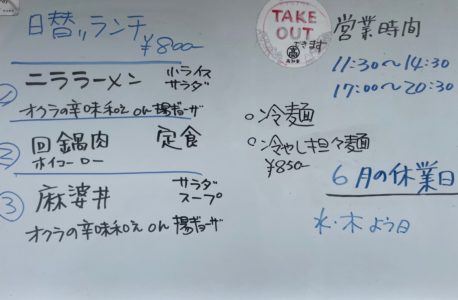 日替りランチ
¥800-
① ニララーメン 小ライス サラダ
オクラの辛味和え or 揚ギョーザ
② 回鍋肉 定食
ホイコーロー
③ 麻婆丼 サラダ スープ
オクラの辛味和え or 揚ギョーザ
TAKE
OUT
できます
営業時間
11:30〜14:30
17:00〜20:30
○冷麺
○冷やし担々麺
¥850-
6月の休業日
水・木よう日